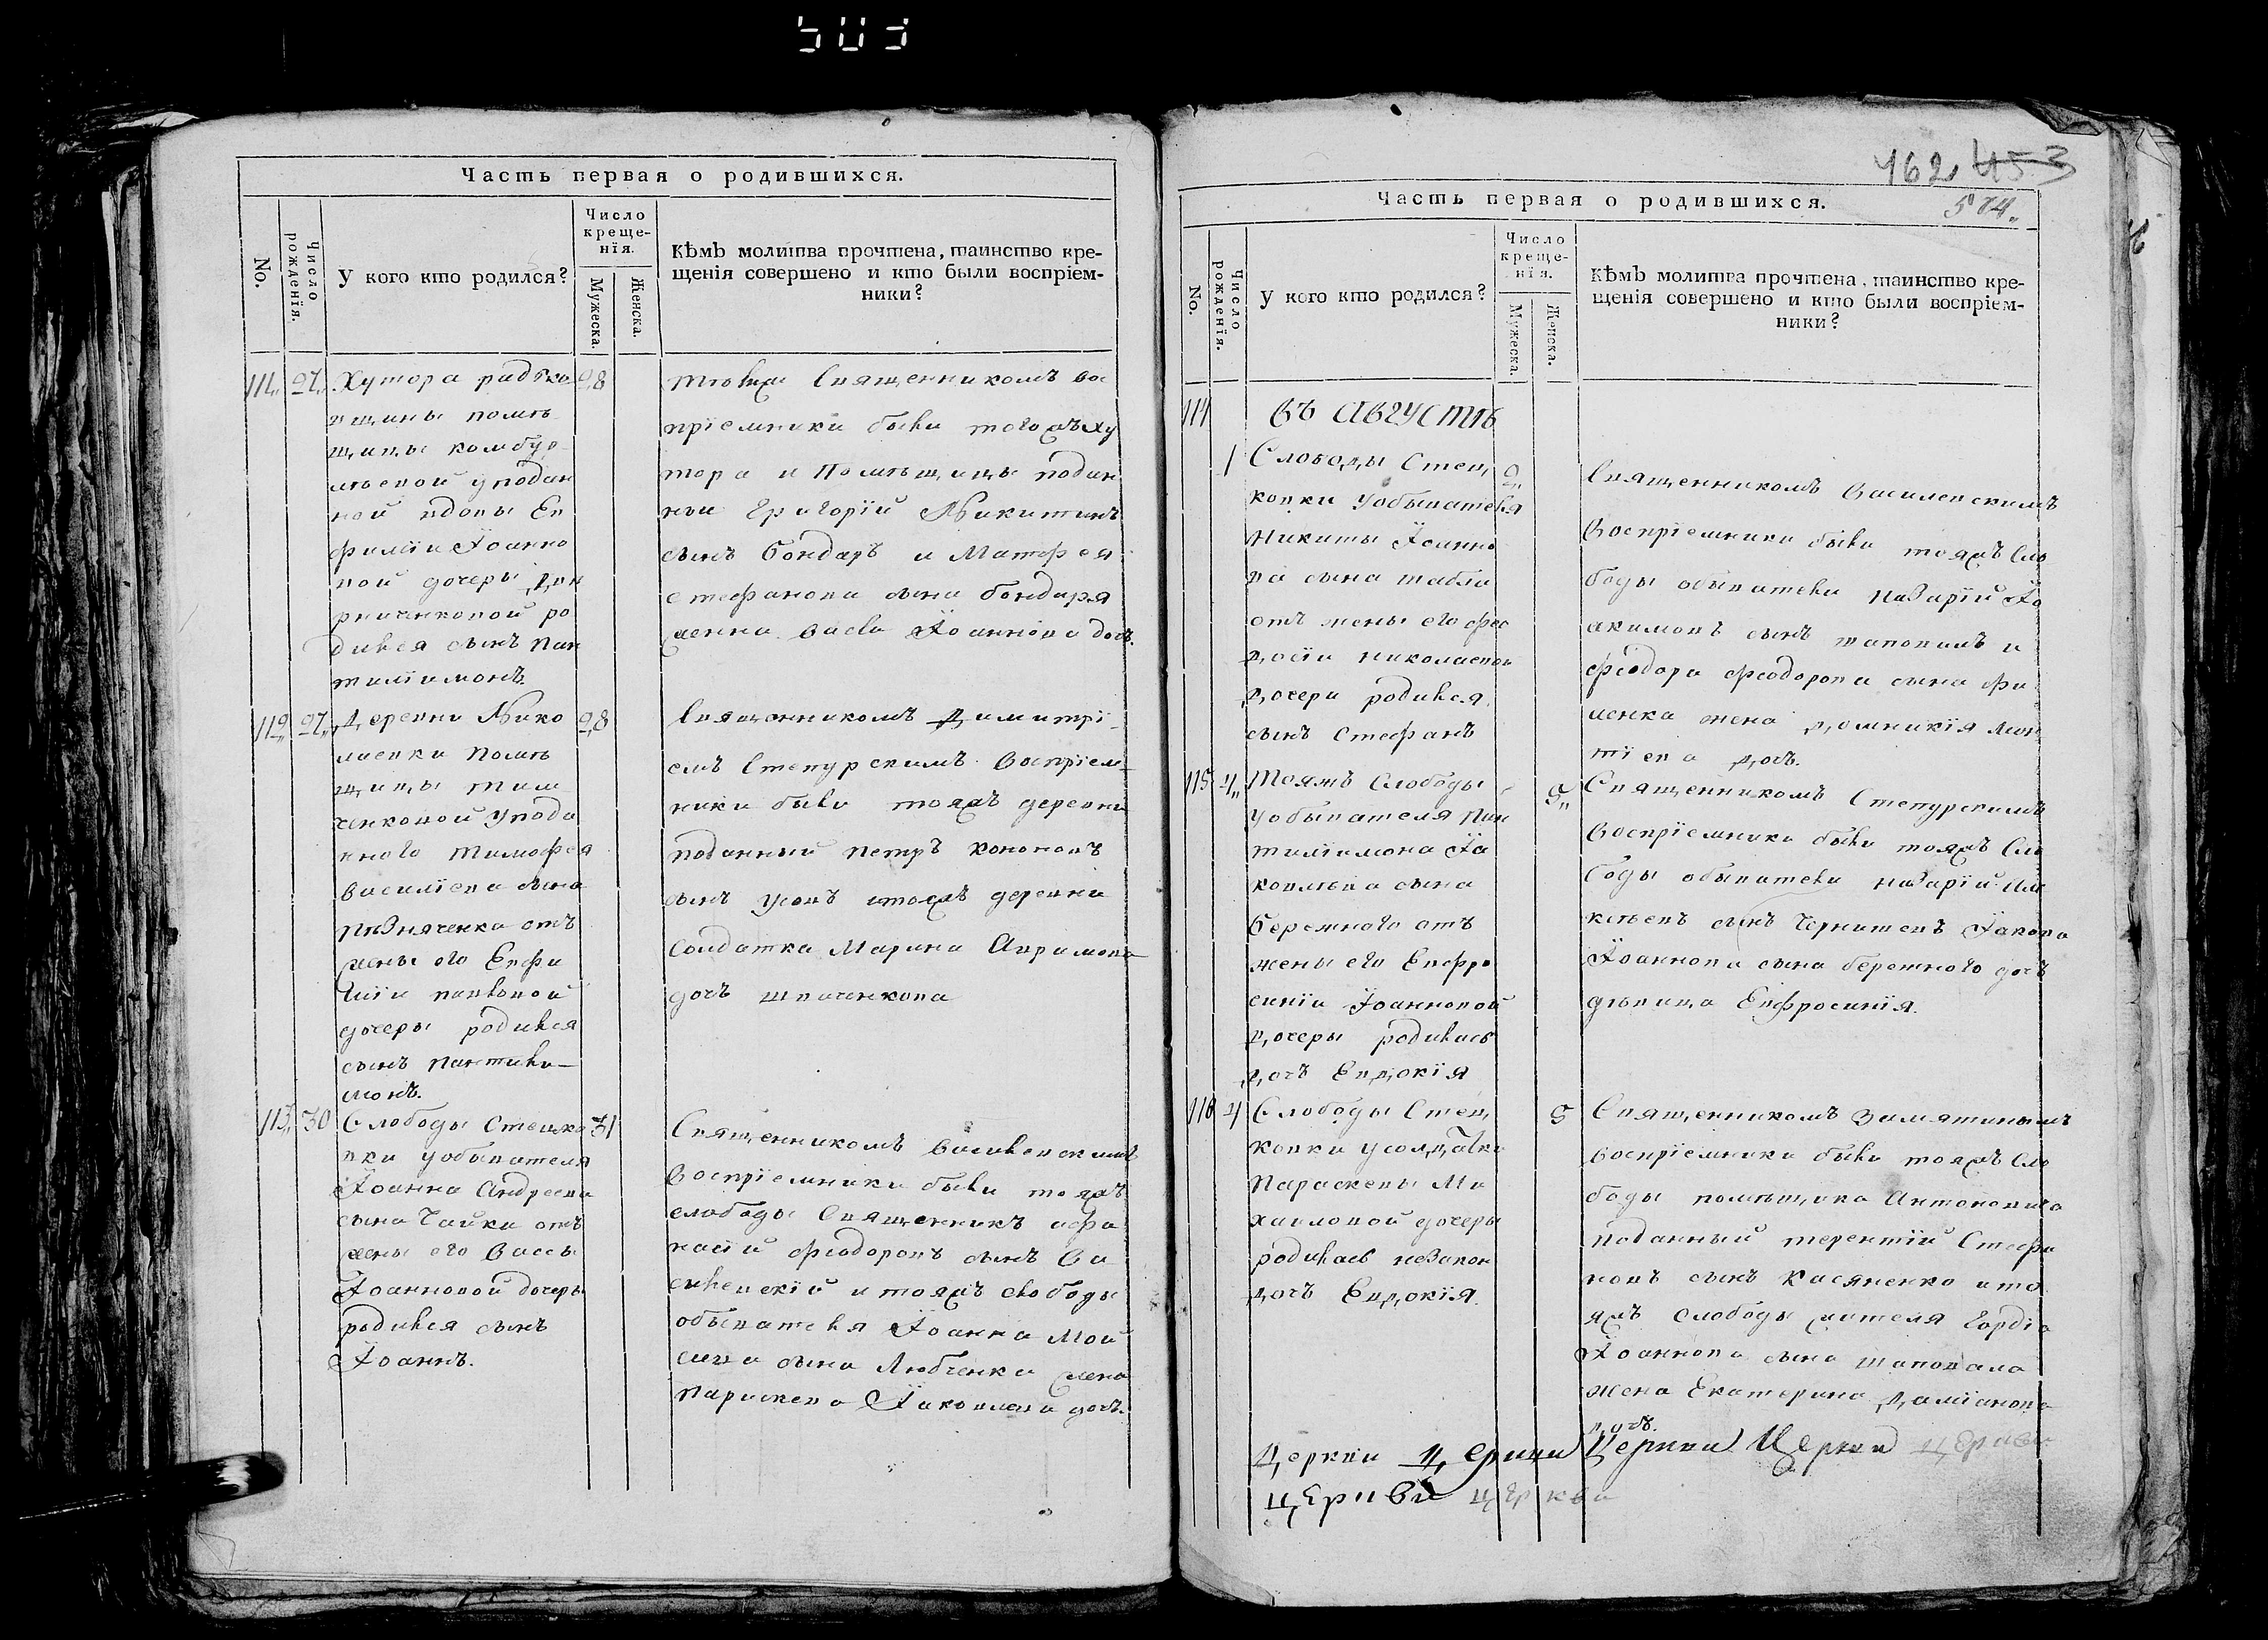 503
Часть первая о родившихся.
No.
Число рожденїя.
У кого кто родился?
Число
креще-
нїя.
Мужеска.
Женска.
Кѣмъ молитва прочтена, таинство кре-
щенїя совершено и кто были воспрїем-
ники?
111 27 Хутора 28
вщины помѣ
щицы комбур
лѣевой уподан
ной вдовы Ев
фимїи Іоанно
вой дочеры
ро
дился сынъ Пан
тилїимонъ.
темже Священникомъ вос
прїемники были тогожъ ху
тора и Помѣщицы подан
ныи Григорїй Никитинъ
сынъ Бондарь и Матфея
Стефанова сына бондаря
жена Васса Іоаннова дочь.
112 27 Деревни Нико 28
лаевки помѣ
щицы Тим
ченковой упода
нного Тимофея
Василїева сына
Позняченка отъ
жены его Евфи
мїи Павловой
дочеры родился
сынъ Пантили-
монъ.
Священникомъ Димитрї-
емъ Степурскимъ Воспрїем-
ники были тояжъ деревни
поданный Петръ Кононовъ
сынъ Усовъ итояжъ деревни
Солдатка Марина Аврамова
дочь Шпаченкова
113 30 Слободы Стецко 31
вки уобывателя
Іоанна Андреева
сына Чайки отъ
жены его Вассы
Іоанновой дочеры
родился сынъ
Іоаннъ.
Священникомъ Василевскимъ
Воспрїемники были тояжъ
слободы Священникъ Афа
насїй Феодоровъ сынъ Ва
силевскїй и тояжъ слободы
обывателя Іоанна Мои
сиева сына Любченка жена
Парискева Іаковлева дочь.
462 453
574
Часть первая о родившихся.
No.
Число рожденїя.
У кого кто родился?
Число
креще-
нїя.
Мужеска.
Женска.
Кѣмъ молитва прочтена, таинство кре-
щенїя совершено и кто были воспрїем-
ники?
114 въ августѣ
1 Слободы Стец 2
ковки уобывателя
Никиты Іоанно
ва сына Шабли
отъ жены его Фео
досїи Николаевой
дочери родился
сынъ Стефанъ
Священникомъ Василевскимъ
Воспрїемники были тояжъ Сло
боды обыватели Назарїй Іо
акимовъ сынъ Шаповалъ и
Феодора Феодорова сына Фи
ленка жена Домникїя Леон
тїева дочь.
115 4 Тояжъ Слободы 5
уобывателя Пан
тилїимона Іа
ковлева сына
Бережного отъ
жены его Евфро
синїи Іоанновой
дочеры родилась
дочь Евдокїя
Священникомъ Степурскимъ
Воспрїемники были тояжъ Сло
боды обыватели Назарїй Але
ксѣевъ сынъ Іакова
Іоаннова сына бережного дочь
дѣвица Евфросинїя.
116 4 Слободы Стец 5
ковки усолдатки
Параскевы Ми
хаиловой дочеры
родилась незакон
дочь Евдокїя.
Священникомъ Замятинымъ
воспрїемники были тояжъ Сло
боды помѣщика Антоновича
поданный Терентїй Стефа
новъ сынъ Касяненко ито
яжъ слободы жителя Гордїа
Іоаннова сына Шаповала
жена Екатерина Дамїанова
дочь.
Церкви Церкви Церкви Церкви церкви
церкви церкви